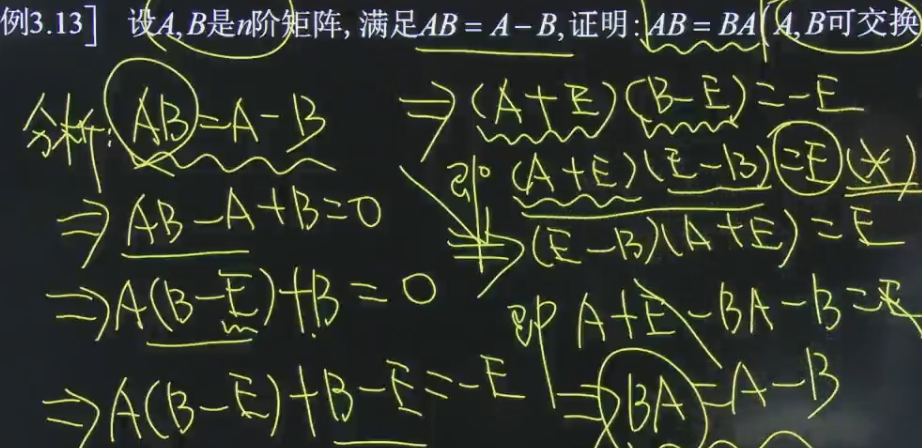 例3.13] 设A,B是n阶矩阵,满足AB = A − B,证明:AB = BA(A,B可交换
分析:AB=A-B
⇒AB-A+B=0
⇒A(B-E)+B=0
⇒A(B-E)+B-E=-E
⇒(A+E)(B-E)=-E
即(A+E)(E-B)=E(*)
⇒(E-B)(A+E)=E
即A+E-BA-B=E
⇒BA=A-B